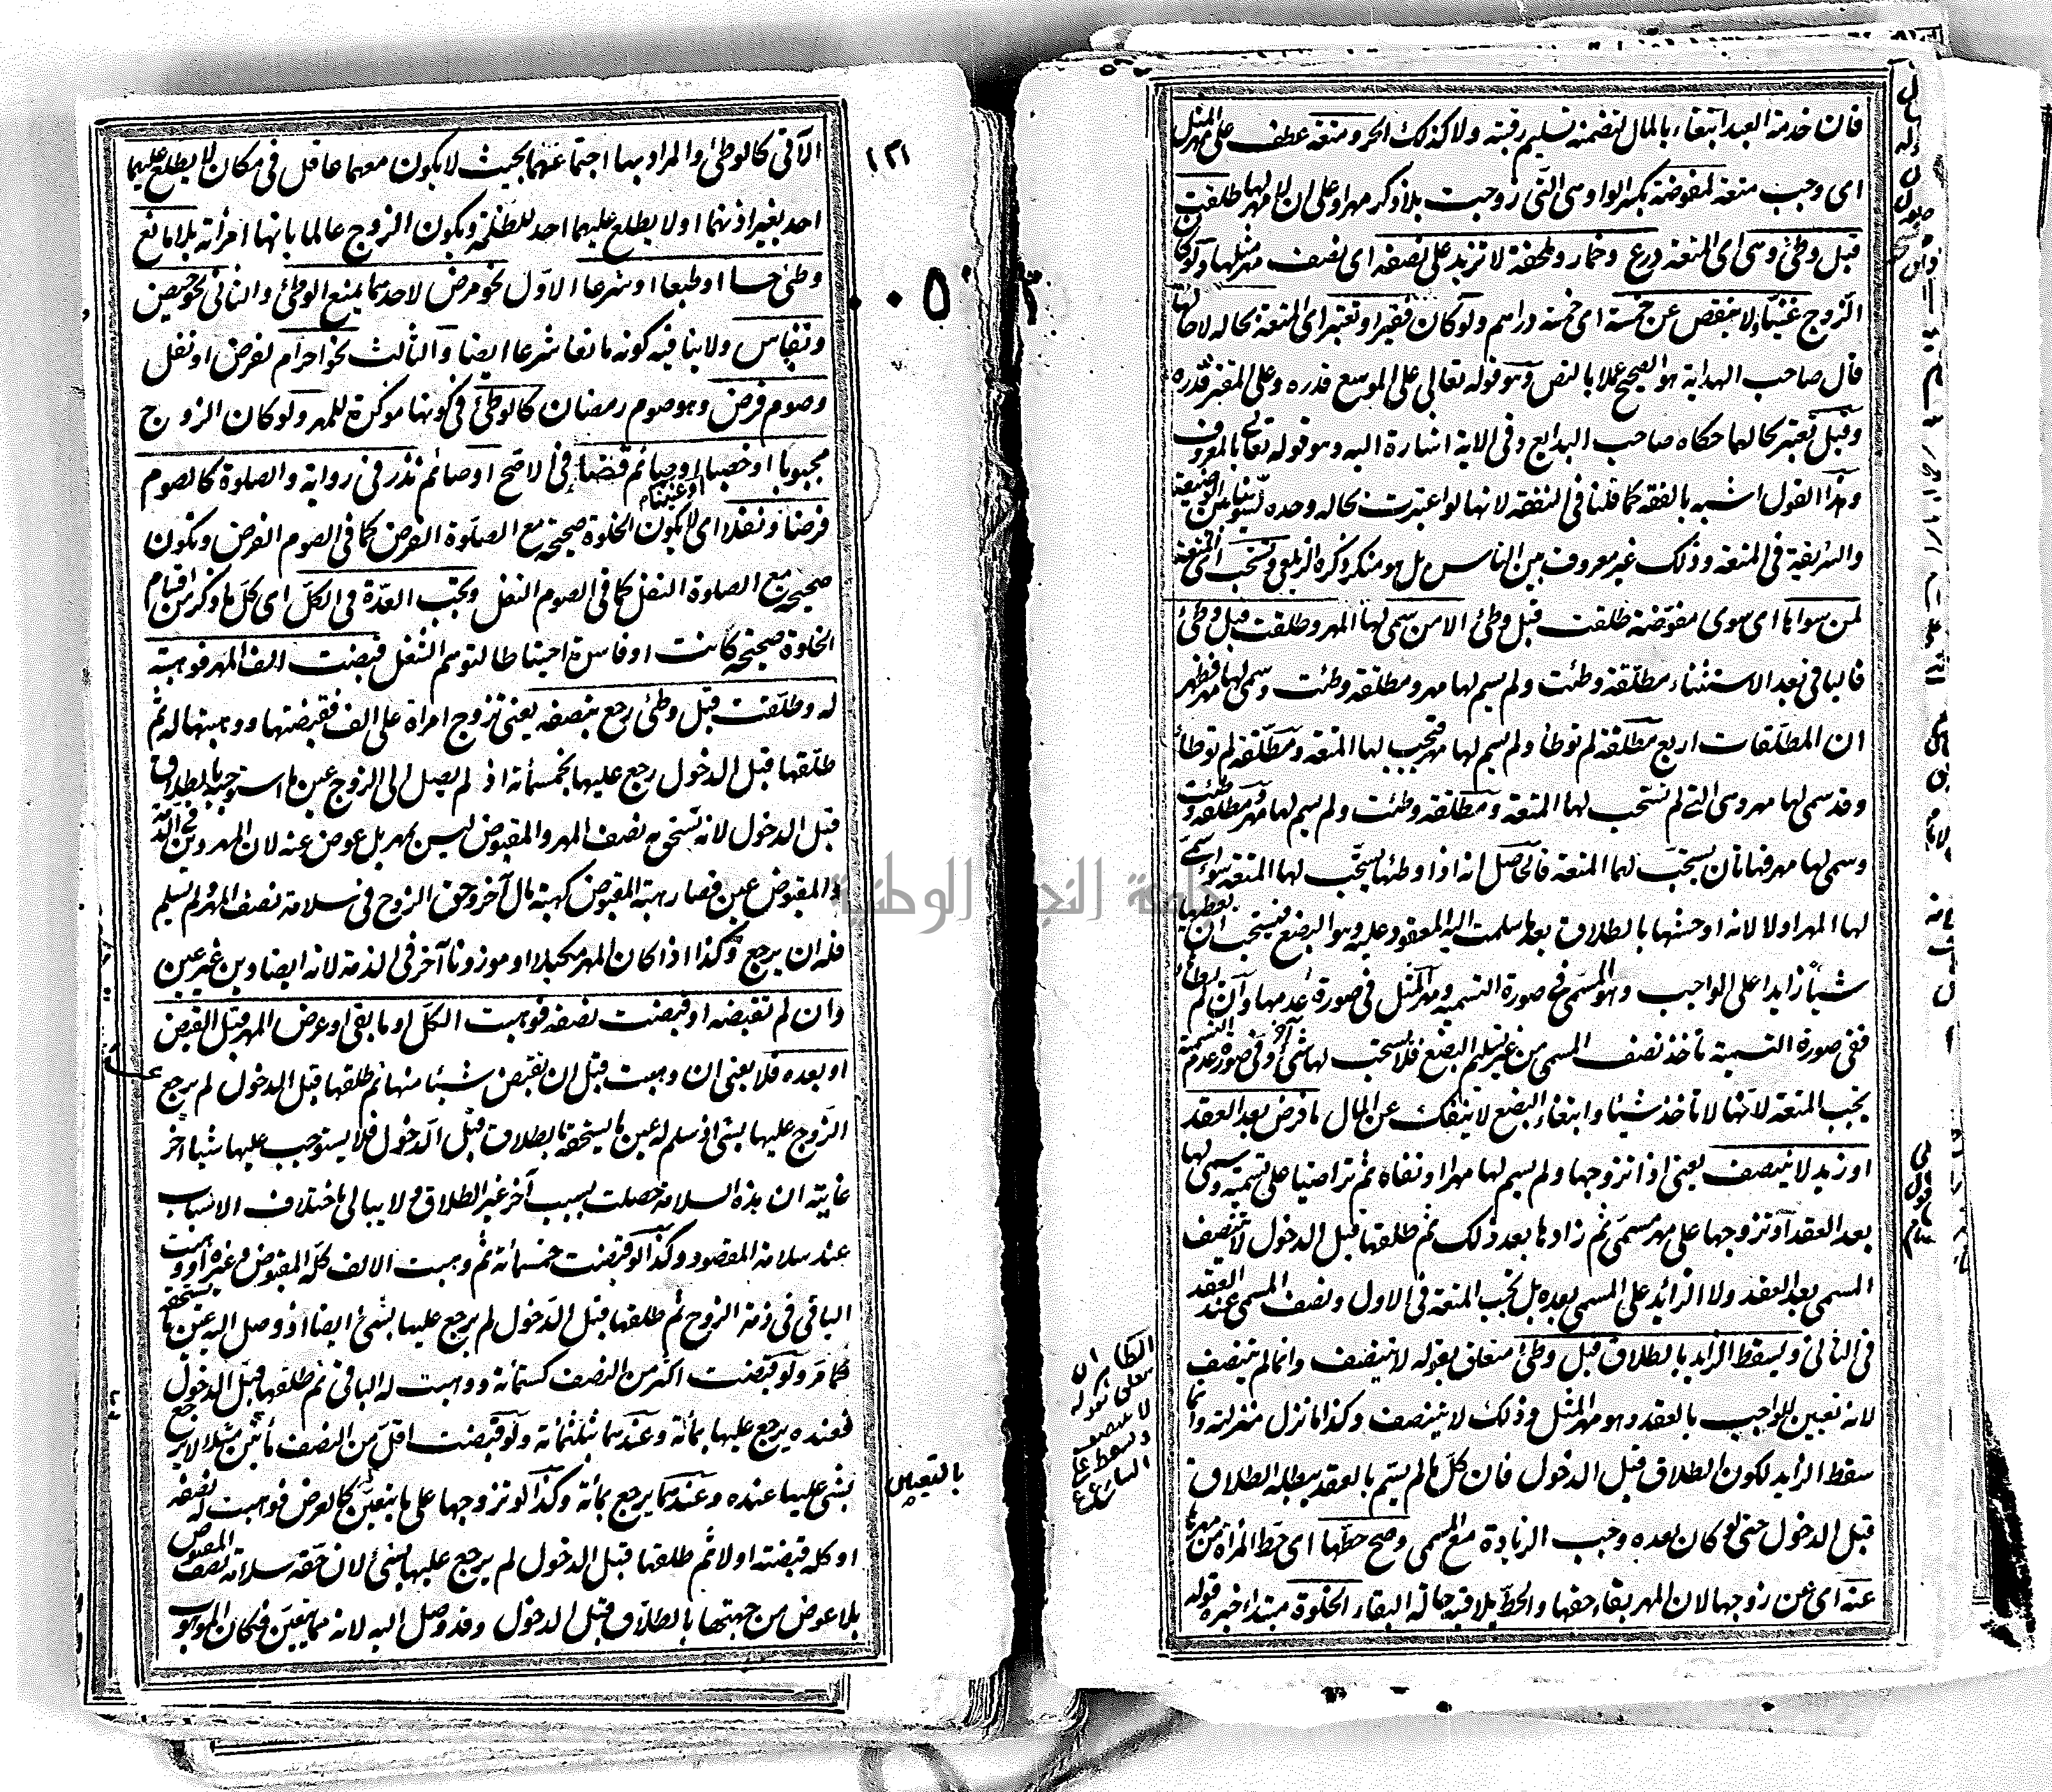 فان خدمة العبد ابتغاء بالمال لتضمنه تسليم رقبته ولا كذلك الحر ومتعة عطف على مهر المثل
اى وجب متعة لمفوضة بكسر الواو وهى التى زوجت بلا ذكر مهر او على ان لا مهر لها طلقت
قبل وطئ وهى اى المتعة درع وخمار وملحفة لا تزيد على نصفه اى نصف مهر مثلها ولو كان
الزوج غنيا ولا ينقص عن خمسة اى خمسة دراهم ولو كان فقيرا وتعتبر اى المتعة بحاله لا حالها
قال صاحب الهداية هو الصحيح عملا بالنص وهو قوله تعالى على الموسع قدره وعلى المقتر قدره
وقيل تعتبر بحالهما حكاه صاحب البدايع وفى الاية اشارة اليه وهو قوله تعالى بالمعروف
وهذا القول اشبه بالفقه كما قلنا فى النفقة لانها لو اعتبرت بحاله وحده لسوينا بين الوضيعة
والشريفة فى المتعة وذلك غير معروف بين الناس بل هو منكر ذكره الزيلعى وتستحب اى المتعة
لمن سواها اى سوى مفوضة طلقت قبل وطئ الا من سمى لها المهر وطلقت قبل وطئ
فالباقى بعد الاستثناء مطلقة وطئت ولم يسم لها مهر ومطلقة وطئت وسمى لها مهر فظهر
ان المطلقات اربع مطلقة لم توطأ ولم يسم لها مهر فتجب لها المتعة ومطلقة لم توطأ
وقد سمى لها مهر وهى التى لم تستحب لها المتعة ومطلقة وطئت ولم يسم لها مهر ومطلقة وطئت
وسمى لها مهر فهاتان يستحب لهما المتعة فالحاصل انه اذا وطئها يستحب لها المتعة سواء سمى
لها المهر اولا لانه اوحشها بالطلاق بعدما سلمت اليه المعقود عليه وهو البضع فيستحب ان يعطيها
شيئا زايدا على الواجب وهو المسمى فى صورة التسمية ومهر المثل فى صورة عدمها وان لم يوطأها
ففى صورة التسمية تأخذ نصف المسمى من غير تسليم البضع فلا يستحب لها شئ آخر وفى صورة عدم التسمية
يجب المتعة لانها لا تأخذ شيئا وابتغاء البضع لا ينفك عن المال ما فرض بعد العقد
او زيد لا يتنصف يعنى اذا تزوجها ولم يسم لها مهرا او نفاه ثم تراضيا على تسميته وسمى لها
بعد العقد او تزوجها على مهر مسمى ثم زادها بعد ذلك ثم طلقها قبل الدخول لا يتنصف
المسمى بعد العقد ولا الزائد على المسمى بعده بل تجب المتعة فى الاول ونصف المسمى عند العقد
فى الثانى ويسقط الزايد بالطلاق قبل وطئ متعلق بقوله لا يتنصف وانما لم يتنصف
لانه تعيين للواجب بالعقد وهو مهر المثل وذلك لا يتنصف وكذا ما نزل منزلته وانما
سقط الزايد لكون الطلاق قبل الدخول فان كل ما لم يسم بالعقد يبطله الطلاق
قبل الدخول حتى لو كان بعده وجب الزيادة مع المسمى وصح حطها اى حط المرأة من مهرها
عنه اى عن زوجها لان المهر بقاء حقها والحط يلاقيه حالة البقاء الخلوة مبتدأ خبره قوله
١٣١
الآتى كالوطئ والمراد بها اجتماعهما بحيث لا يكون معهما عاقل فى مكان لا يطلع عليهما
احد بغير اذنهما او لا يطلع عليهما احد للظلمة ويكون الزوج عالما بانها امرأته بلا مانع
وطئ حسا او طبعا او شرعا الاول نحو مرض لاحدهما يمنع الوطئ والثانى نحو حيض
ونفاس ولا ينافيه كونه مانعا شرعا ايضا والثالث نحو احرام لفرض او نفل
وصوم فرض وهو صوم رمضان كالوطئ فى كونها مؤكدة للمهر ولو كان الزوج
مجبوبا او خصيا او صائم قضاء فى الاصح او صائم نذر فى رواية والصلوة كالصوم
او عنينا
فرضا ونفلا اى لا يكون الخلوة صحيحة مع الصلوة الفرض كما فى الصوم الفرض ويكون
صحيحة مع الصلوة النفل كما فى الصوم النفل وتجب العدة فى الكل اى كل ما ذكر من اقسام
الخلوة صحيحة كانت او فاسدة احتياطا لتوهم الشغل قبضت الف المهر فوهبته
له وطلقت قبل وطئ رجع بنصفه يعنى تزوج امرأة على الف فقبضتها ووهبتها له ثم
طلقها قبل الدخول رجع عليها بخمسمائة اذ لم يصل الى الزوج عين ما استوجبه بالطلاق
قبل الدخول لانه تستحق به نصف المهر والمقبوض ليس بمهر بل عوض عنه لان المهر دين فى الذمة
والمقبوض عين فصار هبة المقبوض كهبة مال آخر وحق الزوج فى سلامة نصف المهر ولم يسلم
فله ان يرجع وكذا اذا كان المهر مكيلا او موزونا آخر فى الذمة لانه ايضا دين غير عين
وان لم تقبضه او قبضت نصفه فوهبت الكل او ما بقى او عرض المهر قبل القبض
او بعده فلا يعنى ان وهبت قبل ان تقبض شيئا منها ثم طلقها قبل الدخول لم يرجع
الزوج عليها بشئ اذ سلم له عين ما يستحقه بالطلاق قبل الدخول فلا يستوجب عليها شيئا آخر
غايته ان هذه السلامة حصلت بسبب آخر غير الطلاق ولا يبالى باختلاف الاسباب
عند سلامة المقصود وكذا لو قبضت خمسمائة ثم وهبت الالف كله المقبوض وغيره او وهبت
الباقى فى ذمة الزوج ثم طلقها قبل الدخول لم يرجع عليها بشئ ايضا اذ وصل اليه عين ما يستحقه
كما مر ولو قبضت اكثر من النصف كستمائة ووهبت له الباقى ثم طلقها قبل الدخول
فعنده يرجع عليها بمائة وعندهما بثلثمائة ولو قبضت اقل من النصف مأتين مثلا لا يرجع
بشئ عليها عنده وعندهما يرجع بمائة وكذا لو تزوجها على ما يتعين كالعرض فوهبت له نصفه
بالتعيين
او كله قبضته اولا ثم طلقها قبل الدخول لم يرجع عليها بشئ لان حقه سلامة نصف المقبوض
بلا عوض من جهتها بالطلاق قبل الدخول وقد وصل اليه لانه مما يتعين فكان الموهوب
جامعة النجاح الوطنية